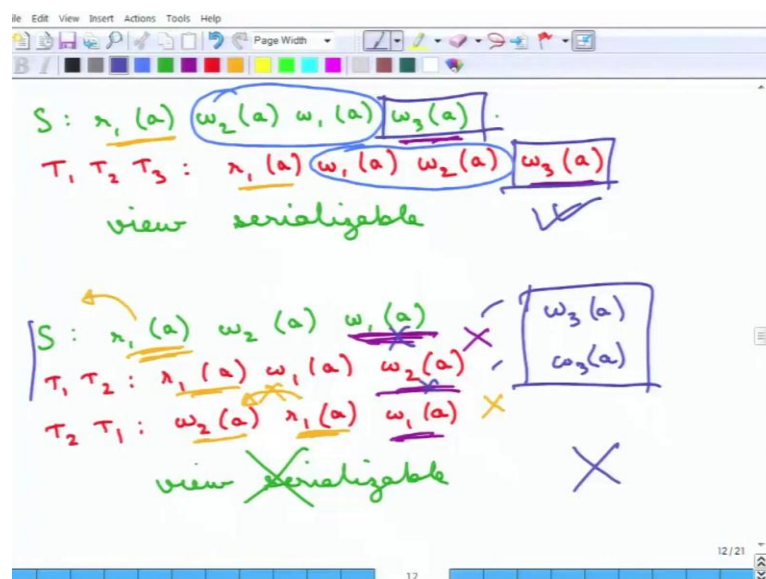 ile Edit View Insert Actions Tools Help
Page Width
B I
S : r₁(a) w₂(a) w₁(a) w₃(a) .
T₁ T₂ T₃ : r₁(a) w₁(a) w₂(a) w₃(a)
view serializable
S : r₁(a) w₂(a) w₁(a) w₃(a)
T₁ T₂ : r₁(a) w₁(a) w₂(a) w₃(a)
T₂ T₁ : w₂(a) r₁(a) w₁(a)
view serializable
12/21
12